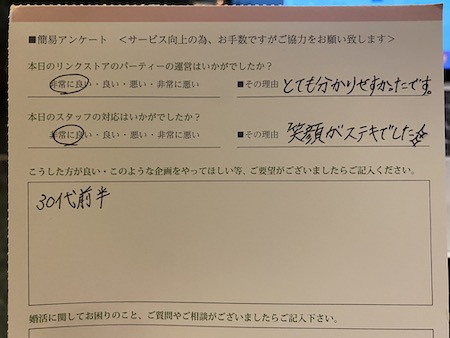 ■簡易アンケート <サービス向上の為、お手数ですがご協力をお願い致します>
本日のリンクストアのパーティーの運営はいかがでしたか?
非常に良い・良い・悪い・非常に悪い ■その理由 とても分かりやすかったです。
本日のスタッフの対応はいかがでしたか?
非常に良い・良い・悪い・非常に悪い ■その理由 笑顔がステキでした☆
こうした方が良い・このような企画をやってほしい等、ご要望がございましたらご記入ください。
30代前半
婚活に関してお困りのこと、ご質問やご相談がございましたらご記入下さい。